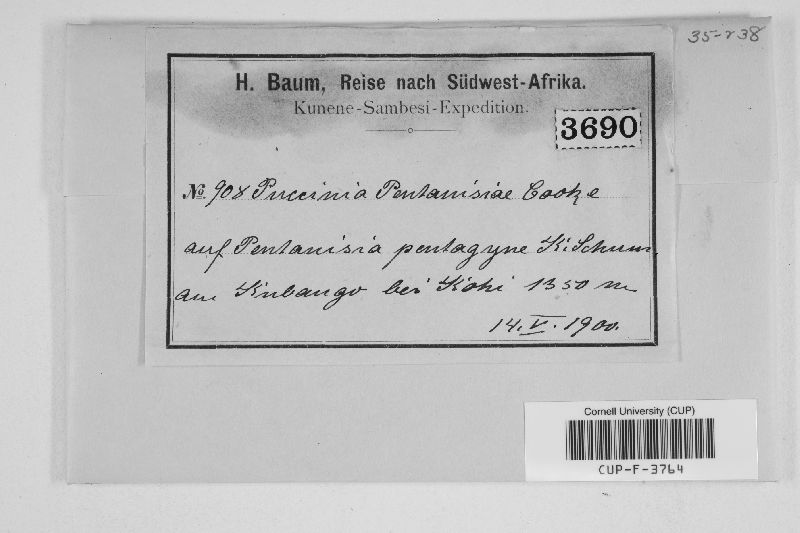 35-238
H. Baum, Reise nach Südwest-Afrika.
Kunene-Sambesi-Expedition.
3690
No. 908 Puccinia Pentanisiae Cooke
auf Pentanisia pentagyne K. Schum.
am Kubango bei Kohi 1350 m
14. V. 1900.
Cornell University (CUP)
CUP-F-3764